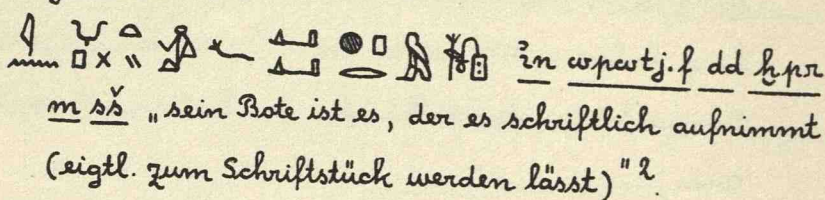 ỉn wpwtj.f dd ḫpr
m sš „sein Bote ist es, der es schriftlich aufnimmt
(eigtl. zum Schriftstück werden lässt)" 2